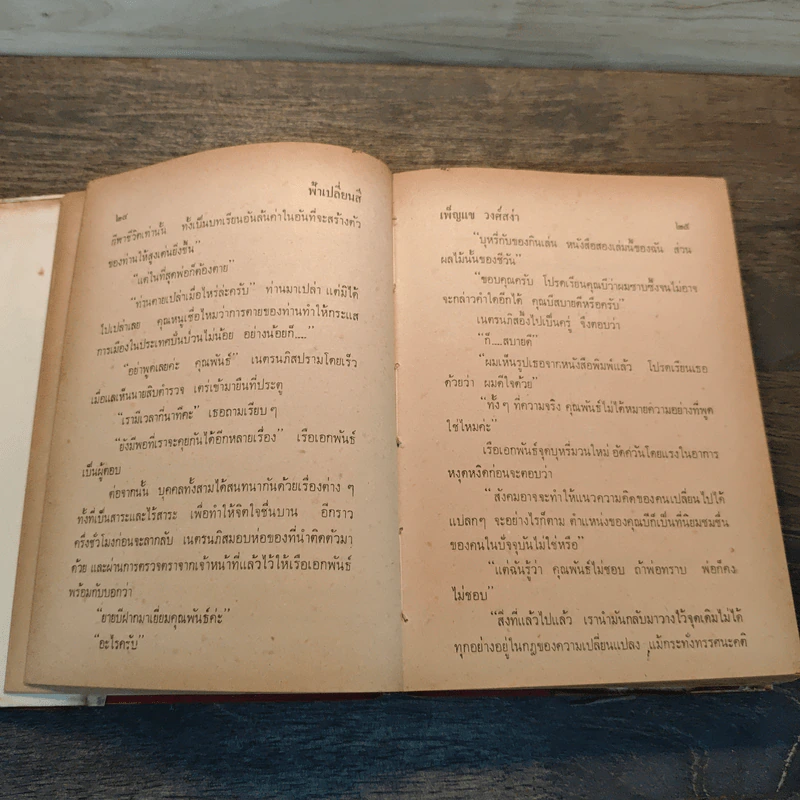 ฟ้าเปลี่ยนสี
๒๘
กีฬาชีวิตเท่านั้น ทั้งเป็นบทเรียนอันล้นค่าในอันที่จะสร้างตัว
ของท่านให้สูงเด่นยิ่งขึ้น”
“แต่ในที่สุดพ่อก็ต้องตาย”
“ท่านตายเปล่าเมื่อไหร่ล่ะครับ” ท่านมาเปล่า แต่มิได้
ไปเปล่าเลย คุณหนูเชื่อไหมว่าการตายของท่านทำให้กระแส
การเมืองในประเทศปั่นป่วนไม่น้อย อย่างน้อยก็....”
“อย่าพูดเลยค่ะ คุณพันธ์” เนตรนภิสปรามโดยเร็ว
เมื่อแลเห็นนายสิบตำรวจ เตร่เข้ามายืนที่ประตู
“เรามีเวลากี่นาทีคะ” เธอถามเรียบๆ
“ยังมีพอที่เราจะคุยกันได้อีกหลายเรื่อง” เรือเอกพันธ์
เป็นผู้ตอบ
ต่อจากนั้น บุคคลทั้งสามได้สนทนากันด้วยเรื่องต่าง ๆ
ทั้งที่เป็นสาระและไร้สาระ เพื่อทำให้จิตใจชื่นบาน อีกราว
ครึ่งชั่วโมงก่อนจะลากลับ เนตรนภิสมอบห่อของที่นำติดตัวมา
ด้วย และผ่านการตรวจตราจากเจ้าหน้าที่แล้วไว้ให้เรือเอกพันธ์
พร้อมกับบอกว่า
“ยายบีฝากมาเยี่ยมคุณพันธ์ค่ะ”
“อะไรครับ”
เพ็ญแข วงศ์สง่า
๒๙
“บุหรี่กับของกินเล่น หนังสือสองเล่มนี้ของฉัน ส่วน
ผลไม้นั้นของชีวัน”
“ขอบคุณครับ โปรดเรียนคุณบีว่าผมซาบซึ้งจนไม่อาจ
จะกล่าวคำใดอีกได้ คุณบีสบายดีหรือครับ”
เนตรนภิสอึ้งไปเป็นครู่ จึงตอบว่า
“ก็....สบายดี”
“ผมเห็นรูปเธอจากหนังสือพิมพ์แล้ว โปรดเรียนเธอ
ด้วยว่า ผมดีใจด้วย”
“ทั้ง ๆ ที่ความจริง คุณพันธ์ไม่ได้หมายความอย่างที่พูด
ใช่ไหมคะ”
เรือเอกพันธ์จุดบุหรี่มวนใหม่ อัดควันโดยแรงในอาการ
หงุดหงิดก่อนจะตอบว่า
“สังคมอาจจะทำให้แนวความคิดของคนเปลี่ยนไปได้
แปลกๆ จะอย่างไรก็ตาม ตำแหน่งของคุณบีก็เป็นที่นิยมชมชื่น
ของคนในปัจจุบันไม่ใช่หรือ”
“แต่ฉันรู้ว่า คุณพันธ์ไม่ชอบ ถ้าพ่อทราบ พ่อก็คง
ไม่ชอบ”
“สิ่งที่แล้วไปแล้ว เรานำมันกลับมาวางไว้จุดเดิมไม่ได้
ทุกอย่างอยู่ในกฎของความเปลี่ยนแปลง แม้กระทั่งทรรศนะคติ